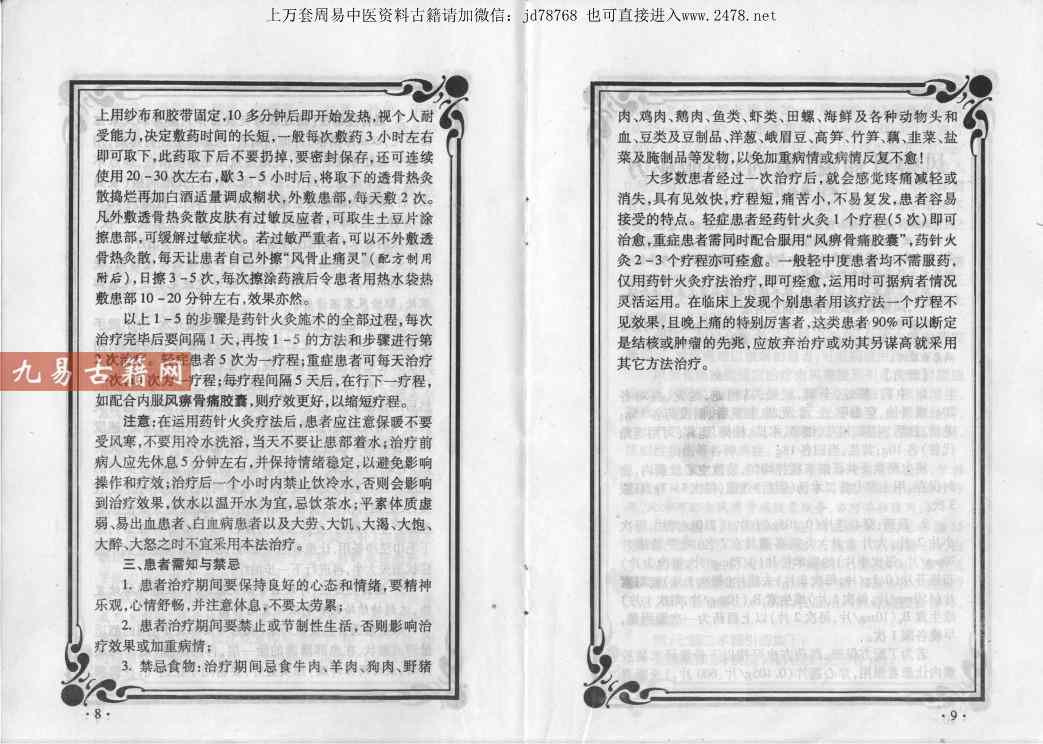 上万套周易中医资料古籍请加微信：jd78768 也可直接进入www.2478.net
上用纱布和胶带固定,10 多分钟后即开始发热,视个人耐
受能力,决定敷药时间的长短,一般每次敷药 3 小时左右
即可取下,此药取下后不要扔掉,要密封保存,还可连续
使用 20-30 次左右,歇 3-5 小时后,将取下的透骨热灸
散捣烂再加白酒适量调成糊状,外敷患部,每天敷 2 次。
凡外敷透骨热灸散皮肤有过敏反应者,可取生土豆片涂
擦患部,可缓解过敏症状。若过敏严重者,可以不外敷透
骨热灸散,每天让患者自己外擦“风骨止痛灵”(配方制用
附后),日擦 3-5 次,每次擦涂药液后令患者用热水袋热
敷患部 10-20 分钟左右,效果亦然。
以上 1-5 的步骤是药针火灸施术的全部过程,每次
治疗完毕后要间隔 1 天,再按 1-5 的方法和步骤进行第
患者 5 次为一疗程;重症患者可每天治疗
疗程;每疗程间隔 5 天后,在行下一疗程,
如配合内服风痹骨痛胶囊,则疗效更好,以缩短疗程。
九易古籍网
注意:在运用药针火灸疗法后,患者应注意保暖不要
受风寒,不要用冷水洗浴,当天不要让患部着水;治疗前
病人应先休息 5 分钟左右,并保持情绪稳定,以避免影响
操作和疗效;治疗后一个小时内禁止饮冷水,否则会影响
到治疗效果,饮水以温开水为宜,忌饮茶水;平素体质虚
弱、易出血患者、白血病患者以及大劳、大饥、大渴、大饱、
大醉、大怒之时不宜采用本法治疗。
三、患者需知与禁忌
1. 患者治疗期间要保持良好的心态和情绪,要精神
乐观,心情舒畅,并注意休息,不要太劳累;
2. 患者治疗期间要禁止或节制性生活,否则影响治
疗效果或加重病情;
3. 禁忌食物:治疗期间忌食牛肉、羊肉、狗肉、野猪
·8·
肉、鸡肉、鹅肉、鱼类、虾类、田螺、海鲜及各种动物头和
血、豆类及豆制品、洋葱、峨眉豆、高笋、竹笋、藕、韭菜、盐
菜及腌制品等发物,以免加重病情或病情反复不愈!
大多数患者经过一次治疗后,就会感觉疼痛减轻或
消失,具有见效快,疗程短,痛苦小,不易复发,患者容易
接受的特点。轻症患者经药针火灸 1 个疗程(5 次)即可
治愈,重症患者需同时配合服用“风痹骨痛胶囊”,药针火
灸 2-3 个疗程亦可痊愈。一般轻中度患者均不需服药,
仅用药针火灸疗法治疗,即可痊愈,运用时可据病者情况
灵活运用。在临床上发现个别患者用该疗法一个疗程不
见效果,且晚上痛的特别厉害者,这类患者 90% 可以断定
是结核或肿瘤的先兆,应放弃治疗或劝其另谋高就采用
其它方法治疗。
·9·